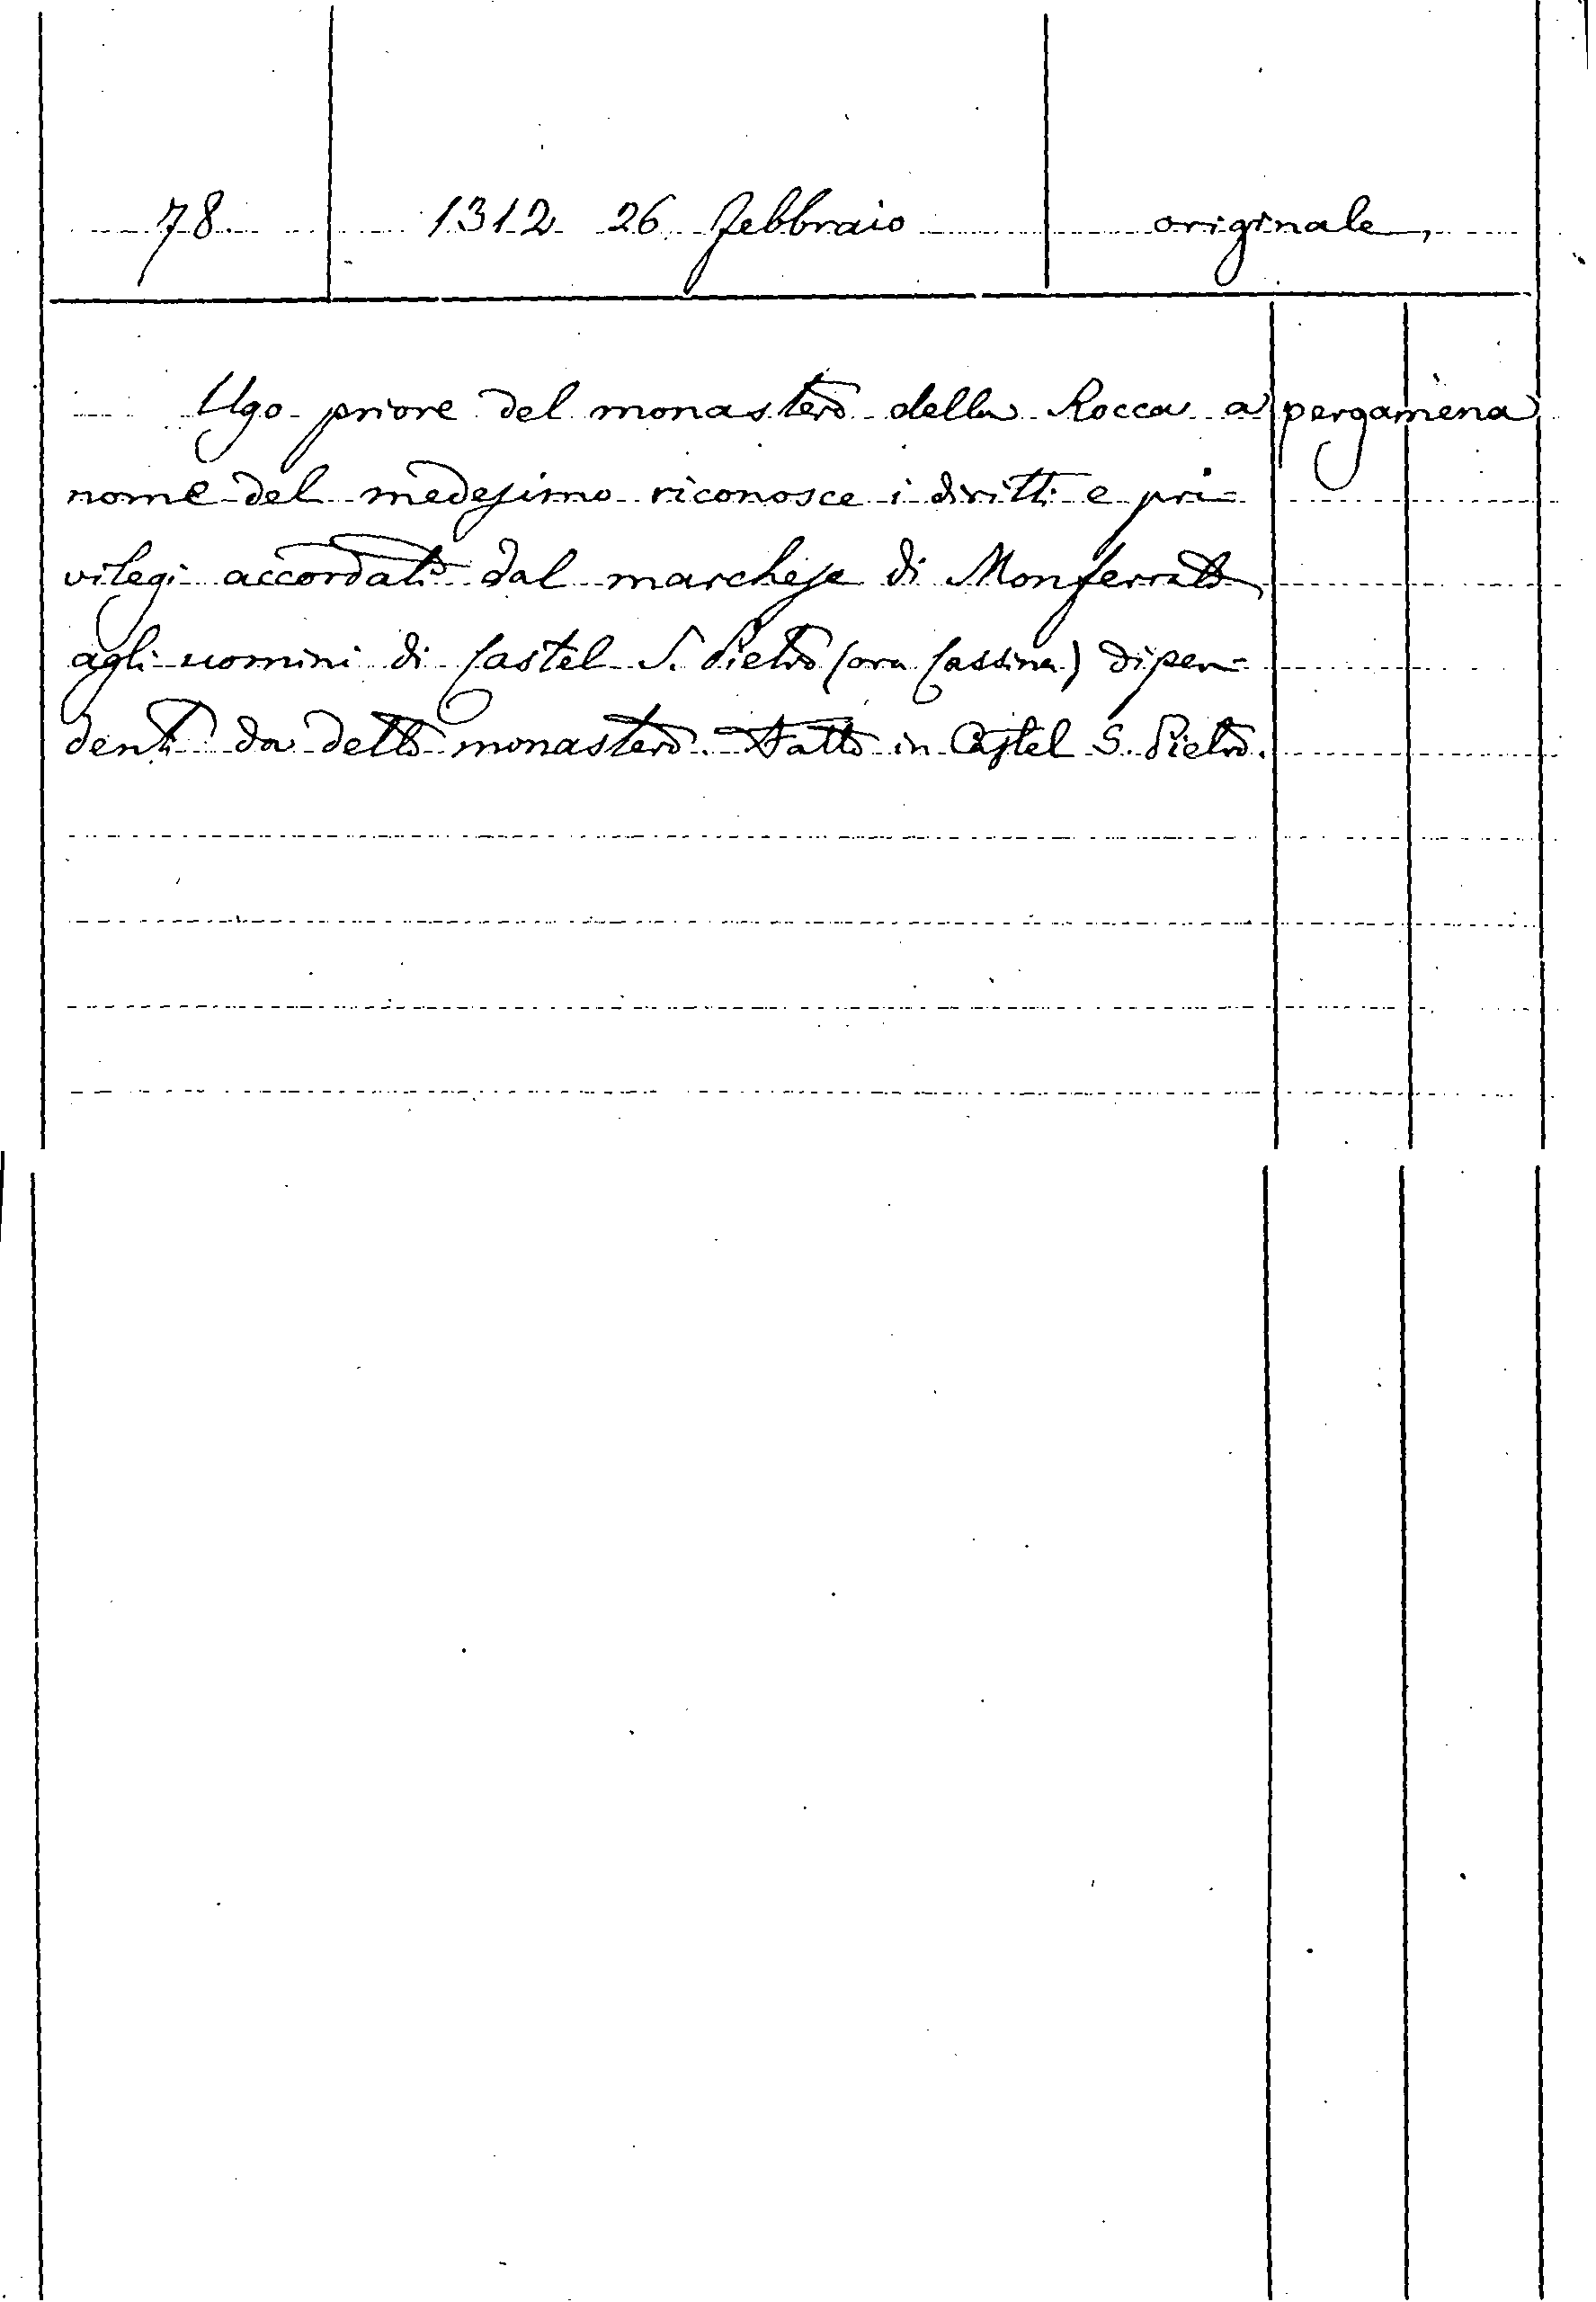 78. 1312 26 febbraio originale,
Ugo priore del monastero della Rocca a pergamena
nome del medesimo riconosce i diritti e pri=
vilegi accordati dal marchese di Monferrato
agli uomini di Castel S. Pietro (ora Cassina) dipen=
denti da detto monastero. Fatto in Castel S. Pietro.